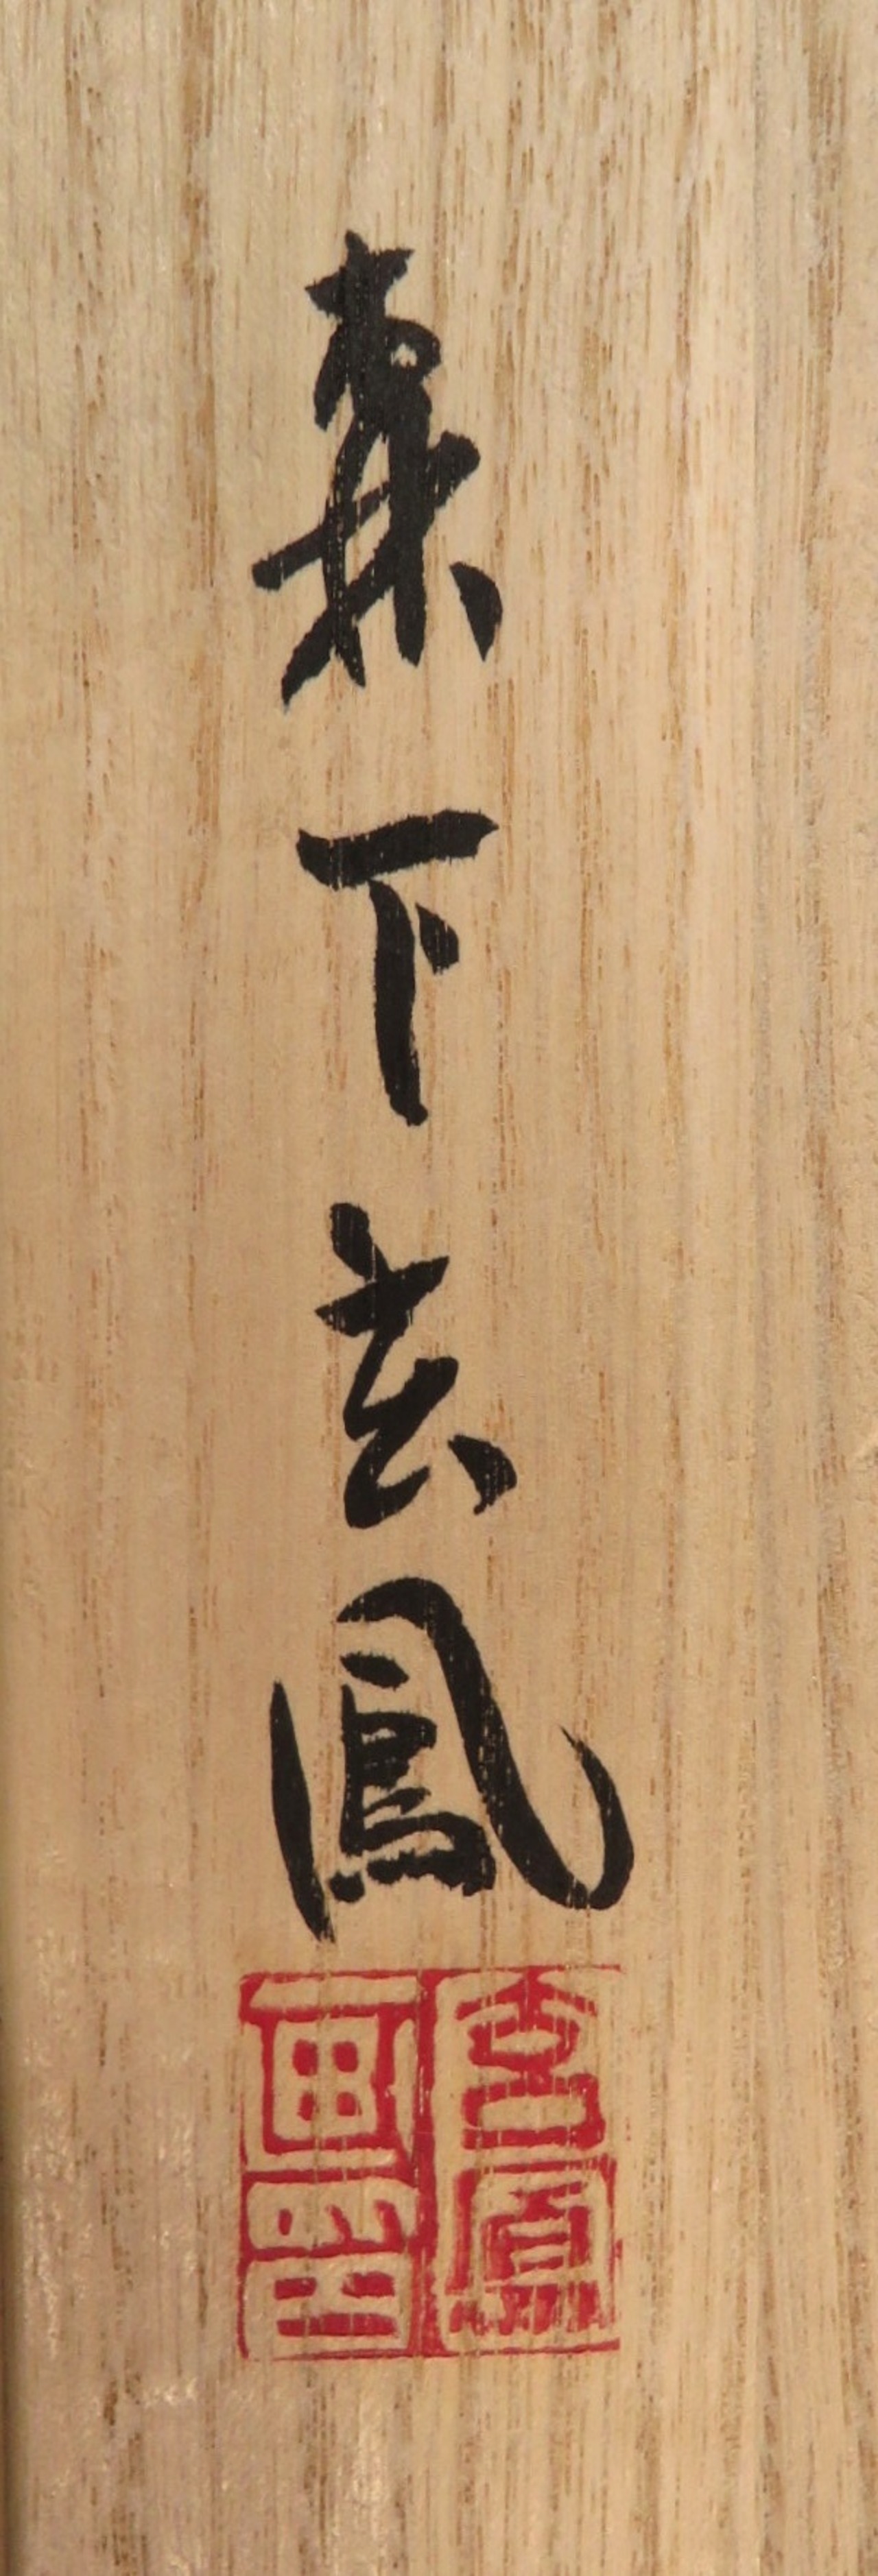 森下玄鳳
玄鳳画印